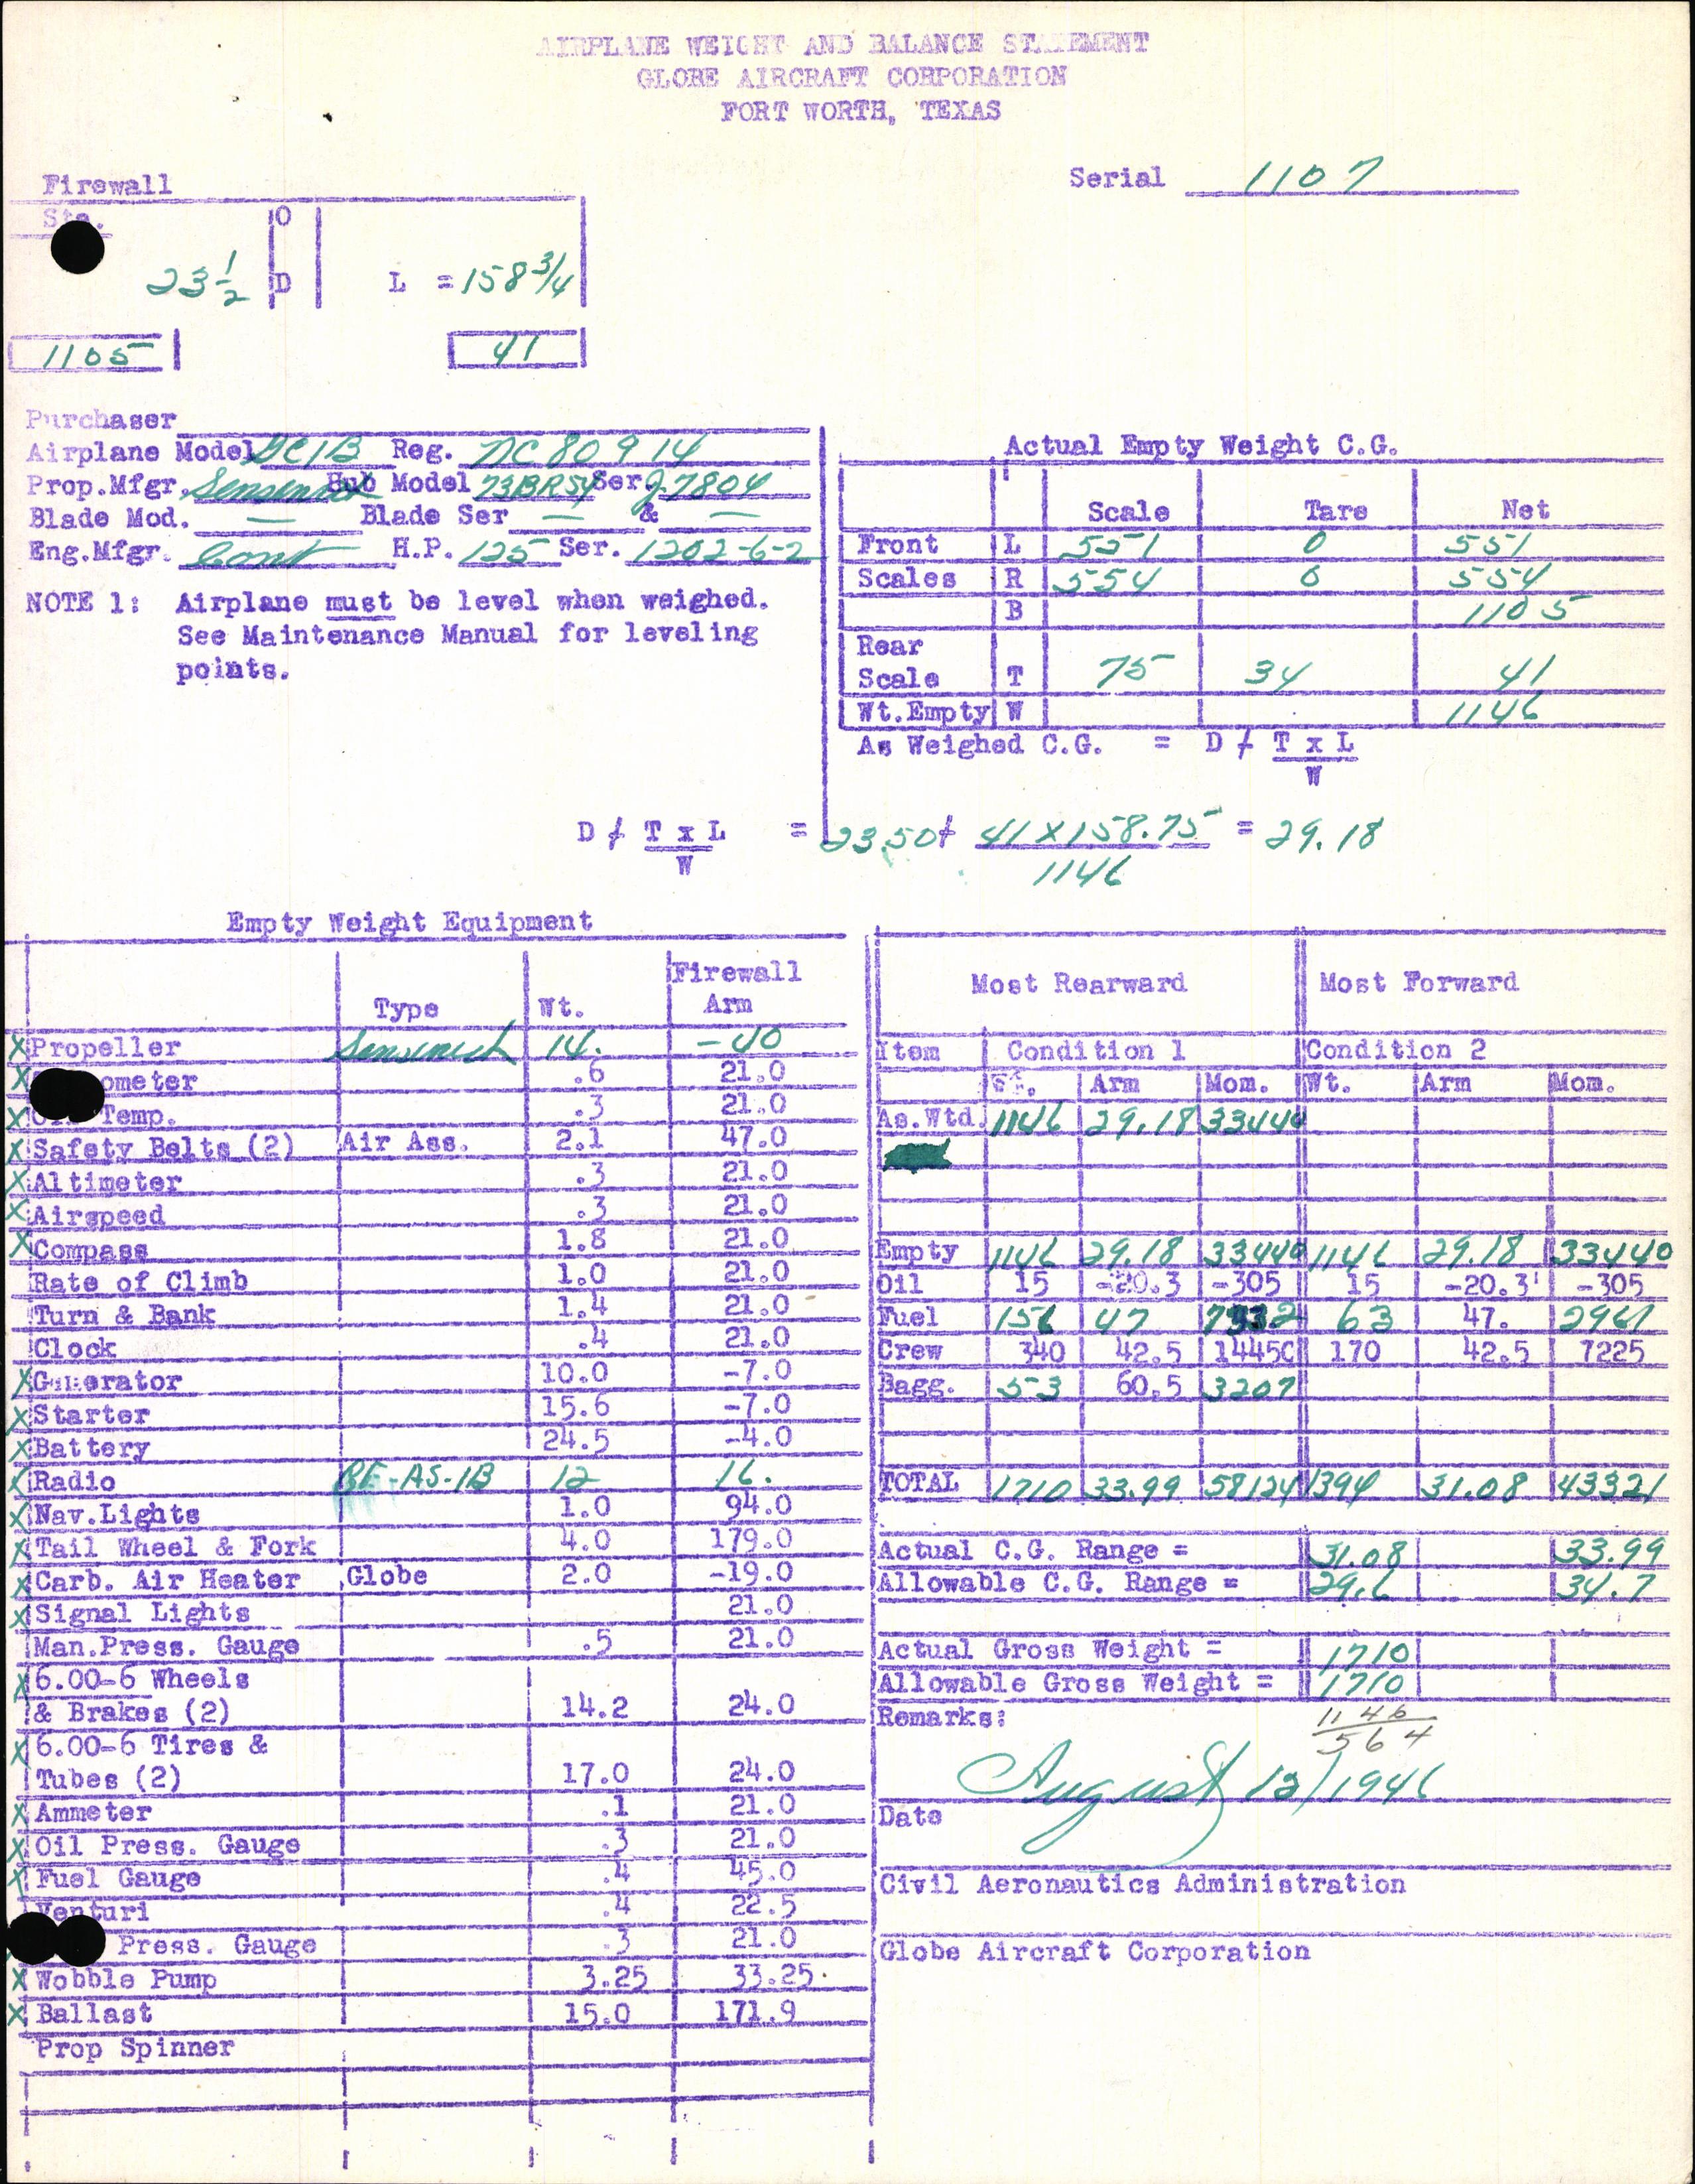 AIRPLANE WEIGHT AND BALANCE STATEMENT
GLOBE AIRCRAFT CORPORATION
FORT WORTH, TEXAS
Serial 1107
Firewall
Sta. O
23 1/2 D L = 158 3/4
1105 41
Purchaser
Airplane Model GC1B Reg. NC 80914
Prop.Mfgr. Sensenich Hub Model 73BR54 Ser. 7804
Blade Mod. — Blade Ser — & —
Eng.Mfgr. Cont H.P. 125 Ser. 1202-6-2
NOTE 1: Airplane must be level when weighed.
See Maintenance Manual for leveling
points.
Actual Empty Weight C.G.
Scale Tare Net
Front L 551 0 551
Scales R 554 0 554
B 1105
Rear
Scale T 75 34 41
Wt.Empty W 1146
As Weighed C.G. = D ≠ T x L
W
D ≠ T x L = 23.50+ 41 X 158.75 = 29.18
W 1146
Empty Weight Equipment
Type Wt. Firewall
Arm
X Propeller Sensenich 14. -40
X ometer .6 21.0
X Temp. .3 21.0
X Safety Belts (2) Air Ass. 2.1 47.0
X Altimeter .3 21.0
X Airspeed .3 21.0
X Compass 1.8 21.0
Rate of Climb 1.0 21.0
Turn & Bank 1.4 21.0
Clock .4 21.0
X Generator 10.0 -7.0
X Starter 15.6 -7.0
X Battery 24.5 -4.0
X Radio -AS-1B 12 16.
X Nav.Lights 1.0 94.0
X Tail Wheel & Fork 4.0 179.0
X Carb. Air Heater Globe 2.0 -19.0
X Signal Lights 21.0
Man.Press. Gauge .5 21.0
X 6.00-6 Wheels
& Brakes (2) 14.2 24.0
X 6.00-6 Tires &
Tubes (2) 17.0 24.0
X Ammeter .1 21.0
X Oil Press. Gauge .3 21.0
X Fuel Gauge .4 45.0
Venturi .4 22.5
Press. Gauge .3 21.0
X Wobble Pump 3.25 33.25
X Ballast 15.0 171.9
Prop Spinner
Most Rearward Most Forward
Item Condition 1 Condition 2
Wt. Arm Mom. Wt. Arm Mom.
As.Wtd. 1146 29.18 33440
Empty 1146 29.18 33440 1146 29.18 33440
Oil 15 -20.3 -305 15 -20.3 -305
Fuel 156 47 7332 63 47. 2961
Crew 340 42.5 14450 170 42.5 7225
Bagg. 53 60.5 3207
TOTAL 1710 33.99 58124 1394 31.08 43321
Actual C.G. Range = 31.08 33.99
Allowable C.G. Range = 29.6 34.7
Actual Gross Weight = 1710
Allowable Gross Weight = 1710
Remarks: 1146
564
August 12/1946
Date
Civil Aeronautics Administration
Globe Aircraft Corporation